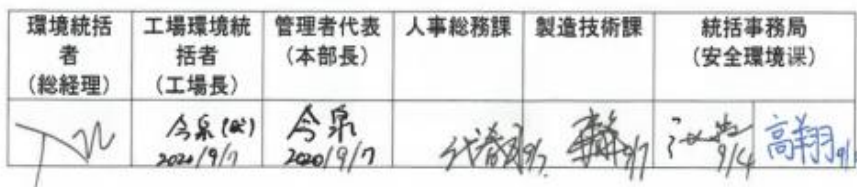 環境統括
者
(総経理)
工場環境統
括者
(工場長)
管理者代表
(本部長)
人事総務課
製造技術課
統括事務局
(安全環境课)
今泉(代)
2020/9/7
今泉
2020/9/7
9/7
9/7
9/4
高翔